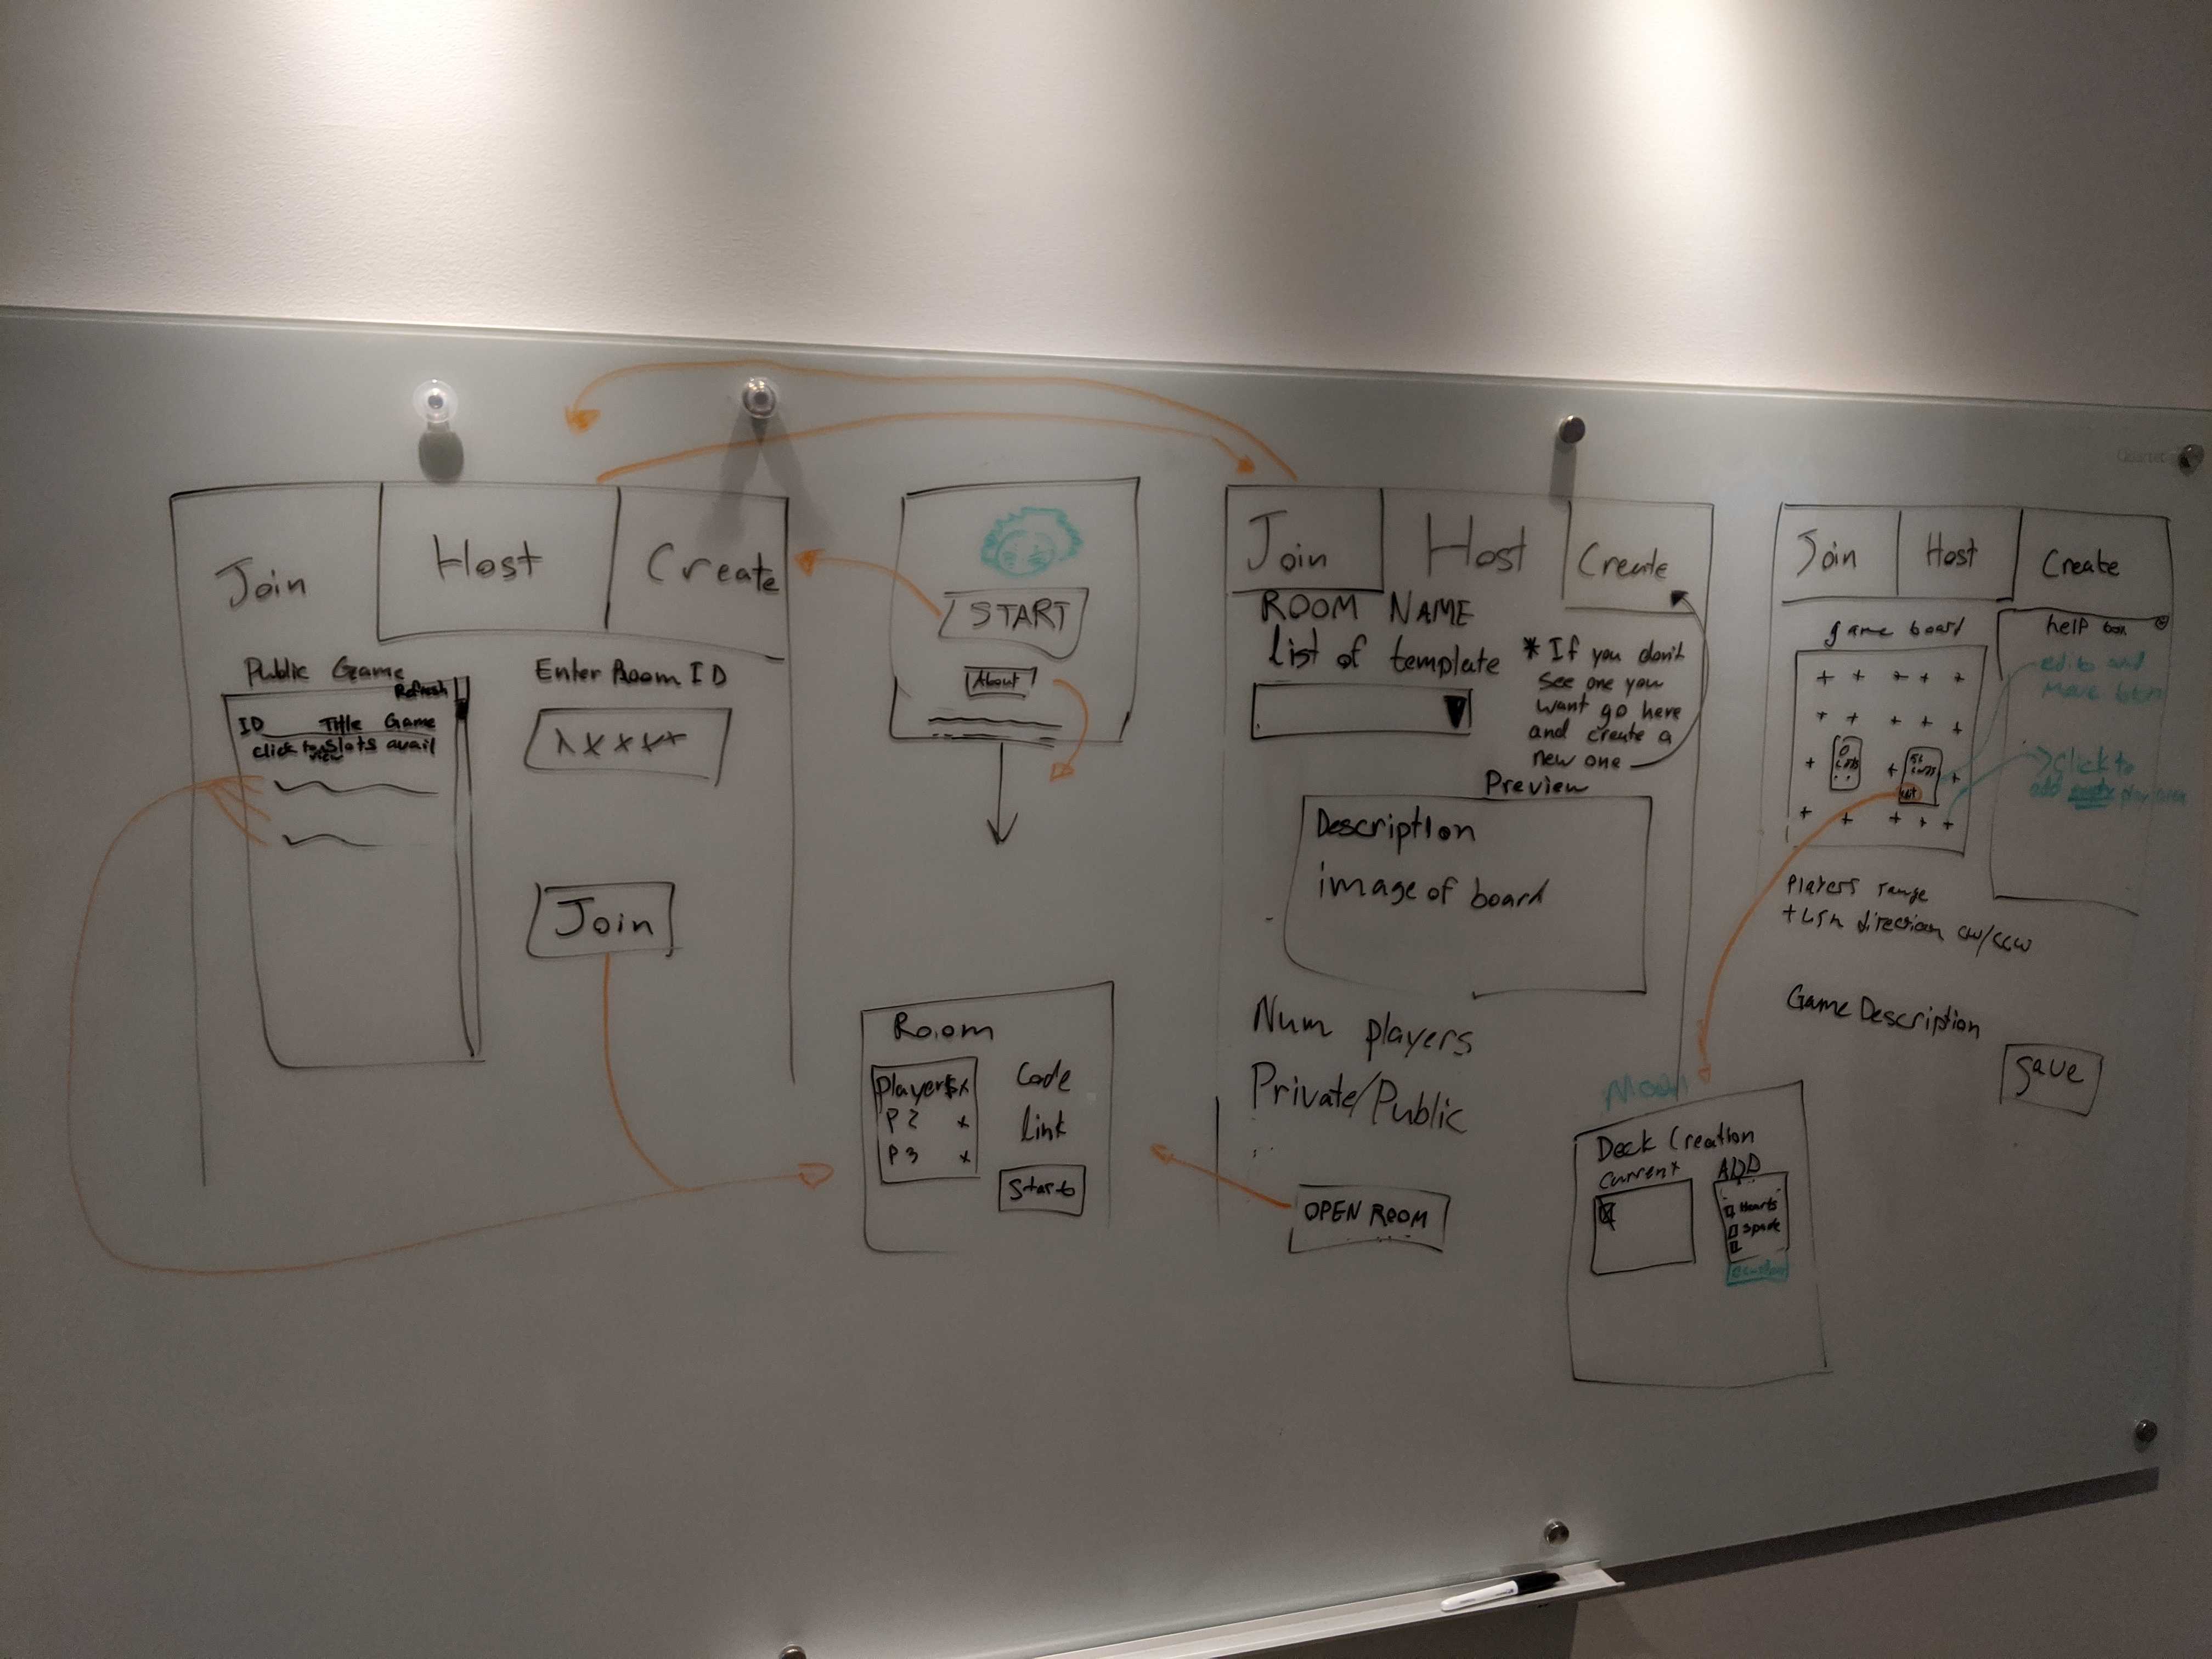 Join Host Create
Public Game
Refresh
ID Title Game
click to view slots avail
Enter Room ID
Join
START
About
Room
Players x
P2 x
P3 x
Code
link
Start
Join Host Create
ROOM NAME
list of template
* If you don't
see one you
want go here
and create a
new one
Preview
Description
image of board
Num players
Private/Public
OPEN ROOM
Join Host Create
game board
help box
edit and
move
click to
add play area
0
52
edit
Players range
direction cw/ccw
Game Description
Save
Deck Creation
Current
ADD
Hearts
Spade